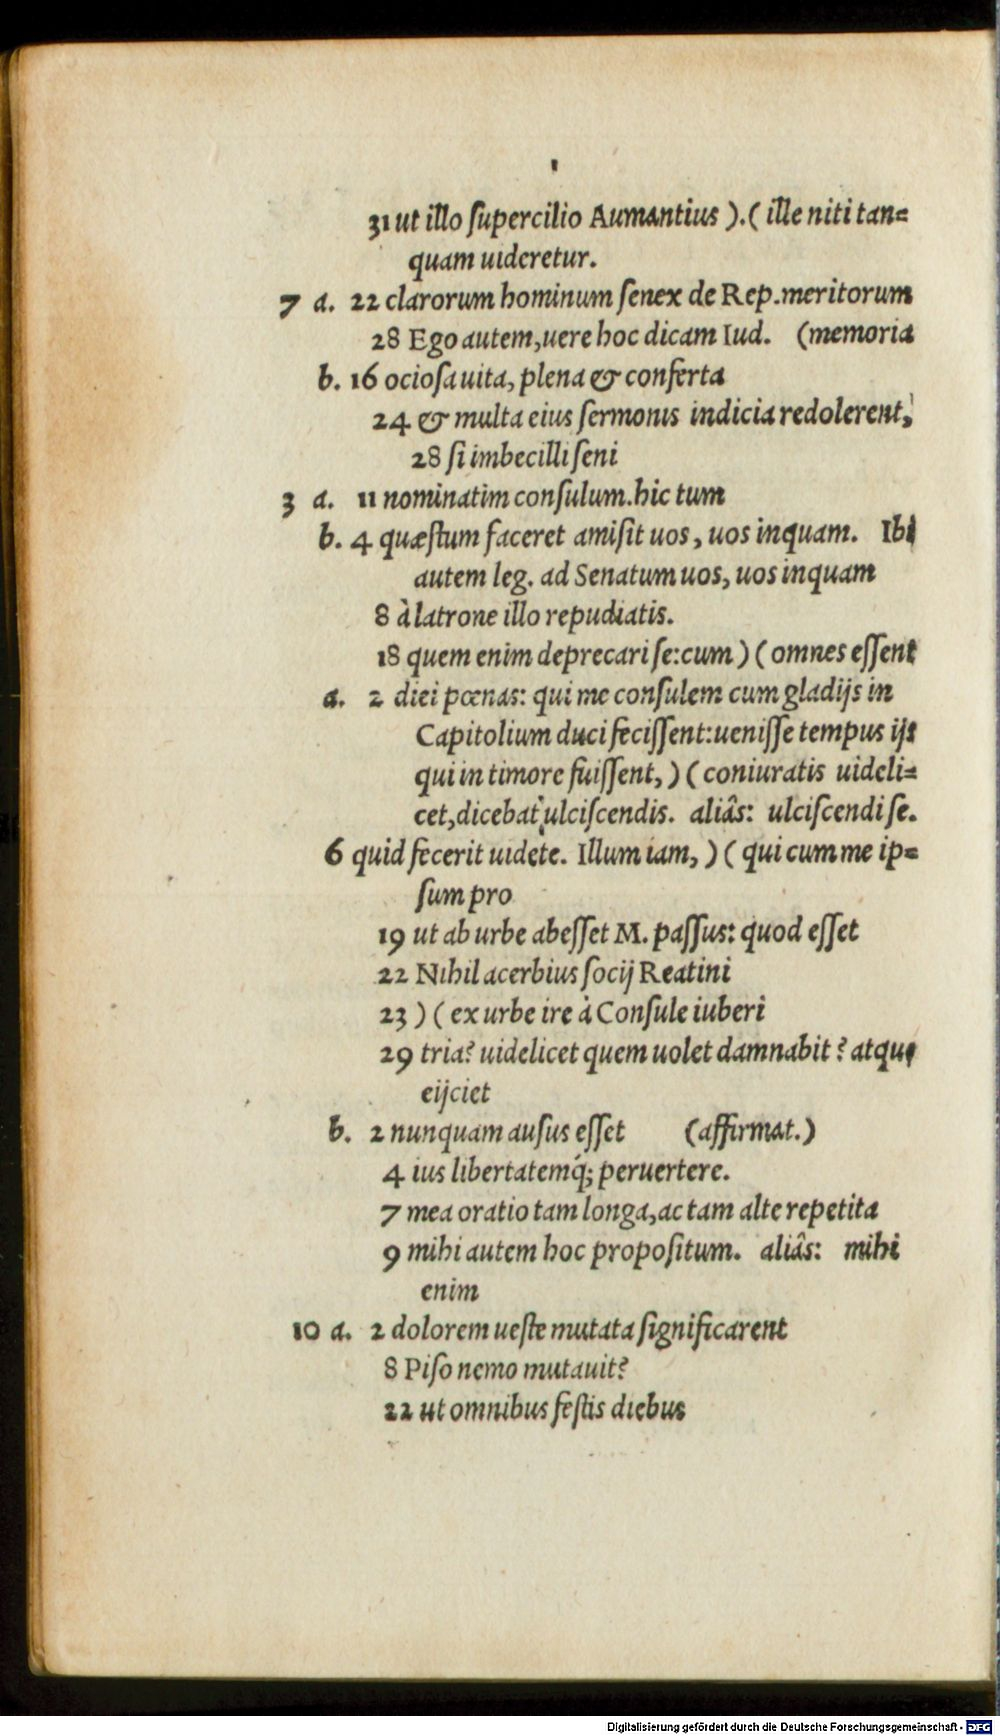 31 ut illo ſupercilio Aumantius ).( ille niti tan=
quam uideretur.
7 a. 22 clarorum hominum ſenex de Rep.meritorum
28 Ego autem,uere hoc dicam Iud. (memoria
b. 16 ocioſa uita, plena & conferta
24 & multa eius ſermonis indicia redolerent,
28 ſi imbecilli ſeni
3 a. 11 nominatim conſulum.hic tum
b. 4 quæſtum faceret amiſit uos, uos inquam. Ibi
autem leg. ad Senatum uos, uos inquam
8 à latrone illo repudiatis.
18 quem enim deprecari ſe:cum ) ( omnes eſſent
a. 2 diei pœnas: qui me conſulem cum gladijs in
Capitolium duci feciſſent:ueniſſe tempus ijs
qui in timore fuiſſent, ) ( coniuratis uideli=
cet,dicebat ulciſcendis. aliâs: ulciſcendi ſe.
6 quid fecerit uidete. Illum iam, ) ( qui cum me ip=
ſum pro
19 ut ab urbe abeſſet M. paſſus: quod eſſet
22 Nihil acerbius ſocij Reatini
23 ) ( ex urbe ire à Conſule iuberi
29 tria? uidelicet quem uolet damnabit ? atque
eijciet
b. 2 nunquam auſus eſſet (affirmat.)
4 ius libertatemq́; peruertere.
7 mea oratio tam longa,ac tam alte repetita
9 mihi autem hoc propoſitum. aliâs: mihi
enim
10 a. 2 dolorem ueſte mutata ſignificarent
8 Piſo nemo mutauit?
22 ut omnibus feſtis diebus
Digitalisierung gefördert durch die Deutsche Forschungsgemeinschaft - DFG